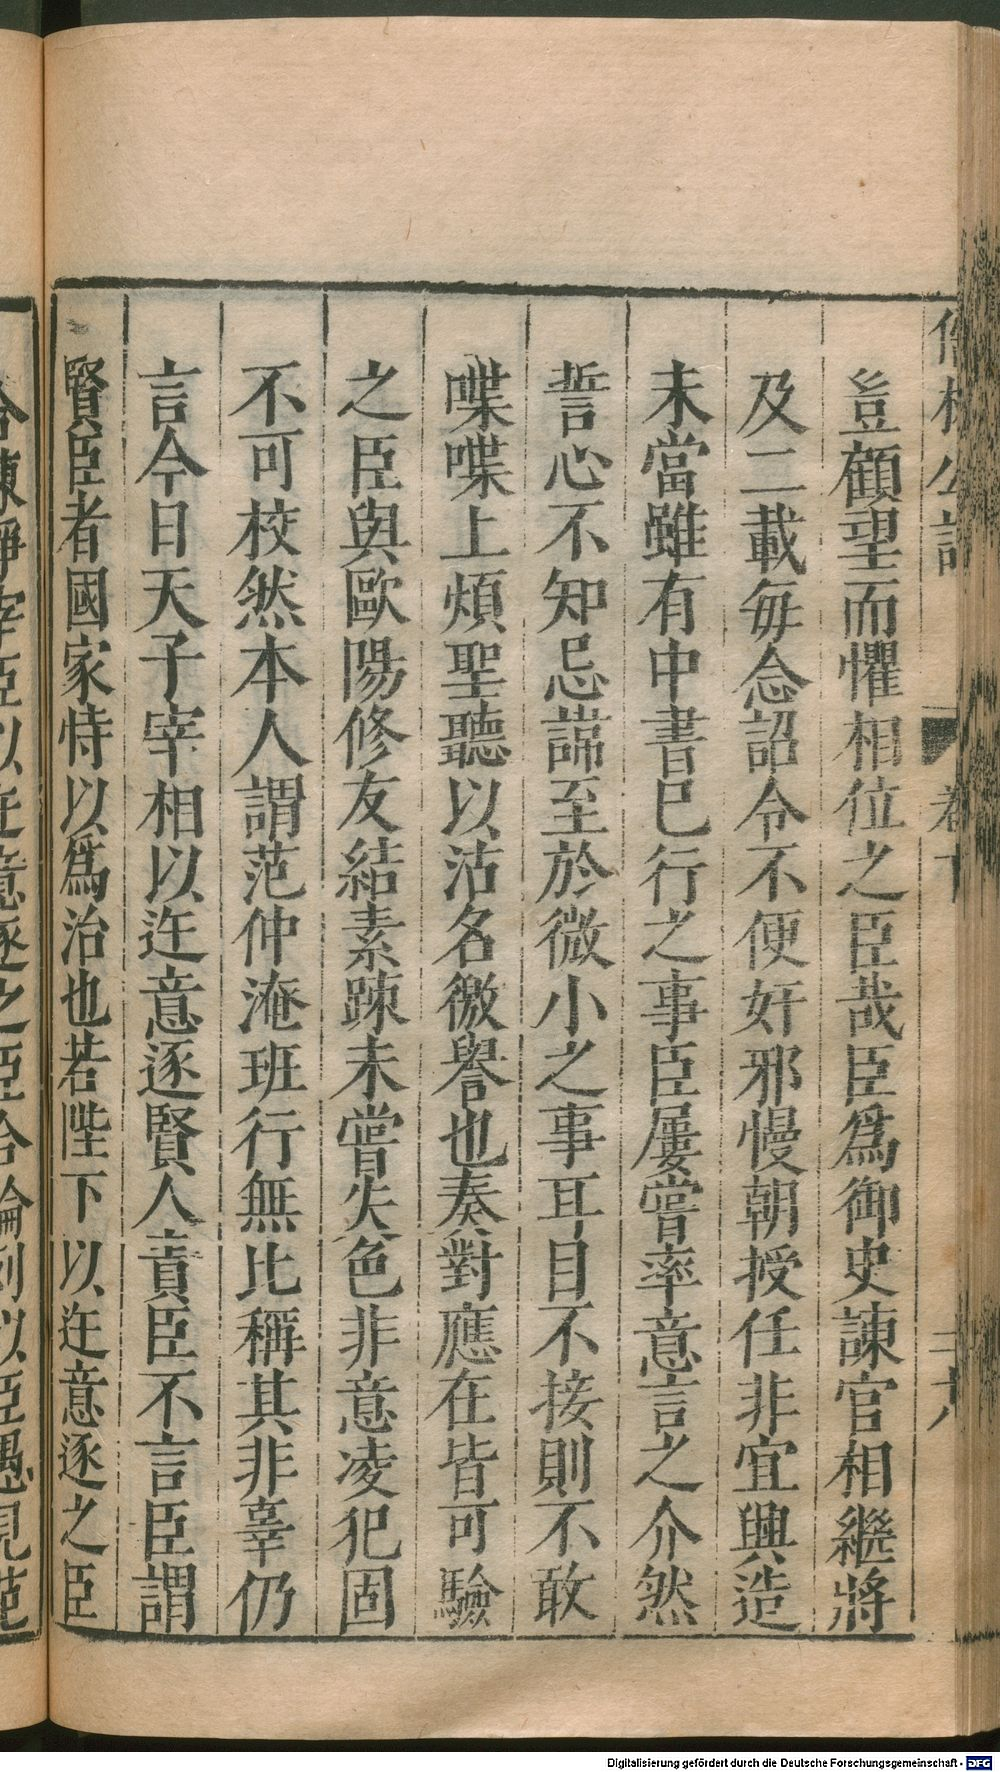 豈顧望而懼相位之臣哉臣爲御史諫官相繼將
及二載每念詔令不便奸邪慢朝授任非宜興造
未當雖有中書已行之事臣屢嘗率意言之介然
誓心不知忌諱至於微小之事耳目不接則不敢
喋喋上煩聖聽以沽名徼譽也奏對應在皆可驗
之臣與歐陽修友結素踈未嘗失色非意凌犯固
不可校然本人謂范仲淹班行無比稱其非辜仍
言今日天子宰相以迕意逐賢人責臣不言臣謂
賢臣者國家恃以爲治也若陛下以迕意逐之臣
合諫諍宰臣以迕意逐之臣合論列以臣愚見范
Digitalisierung gefördert durch die Deutsche Forschungsgemeinschaft - DFG